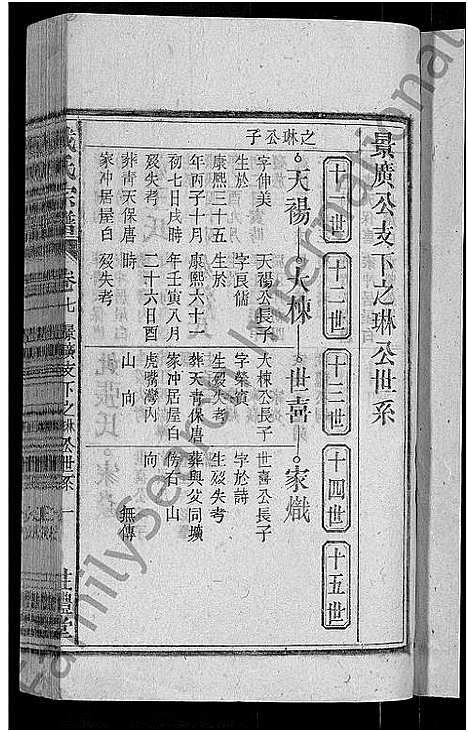 景廣公支下之琳公世系
十一世
十二世
十三世
十四世
十五世
之琳公子
天禓
大棟
世喜
家熾
字伸美
生於
康熙三十五
年丙子十月
初七日戌時
歿失考
葬青天保唐
家冲居屋白
天禓公長子
字良備
康熙六十一
年壬寅八月
二十六日酉
時
歿失考
大棟公長子
字榮績
生歿失考
葬天青保唐
家冲居屋白
虎嘴灣内
山 向
世喜公長子
字於詩
生歿失考
葬與父同壙
傍右 山
向
無傳
氏宗譜
卷七
景廣支下之琳公世系
一
禮堂
FamilySearch International